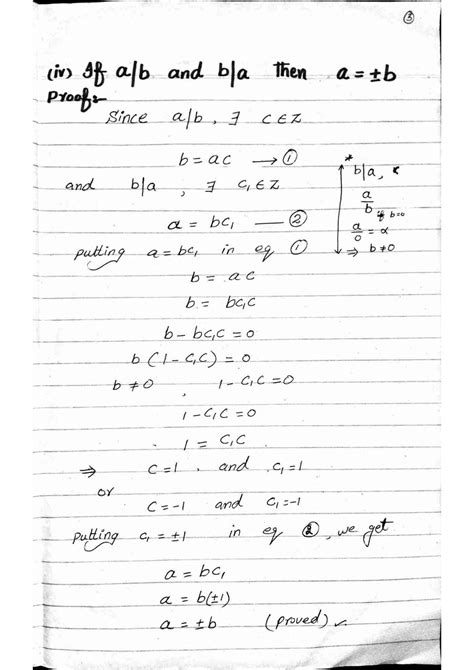 ③
(iv) If a/b and b/a then a = ±b
Proof:-
Since a/b, ∃ c∈Z
b = ac → ①
and b/a, ∃ c₁∈Z
a = bc₁ — ②
putting a = bc₁ in eq ①
b = ac
b = bc₁c
b - bc₁c = 0
b (1 - c₁c) = 0
b ≠ 0, 1 - c₁c = 0
1 - c₁c = 0
1 = c₁c
⇒ c = 1, and c₁ = 1
or
c = -1 and c₁ = -1
putting c₁ = ±1 in eq ②, we get
a = bc₁
a = b(±1)
a = ±b (proved)
* b/a,
a/b if b=0
a/0 = α
⇒ b ≠ 0